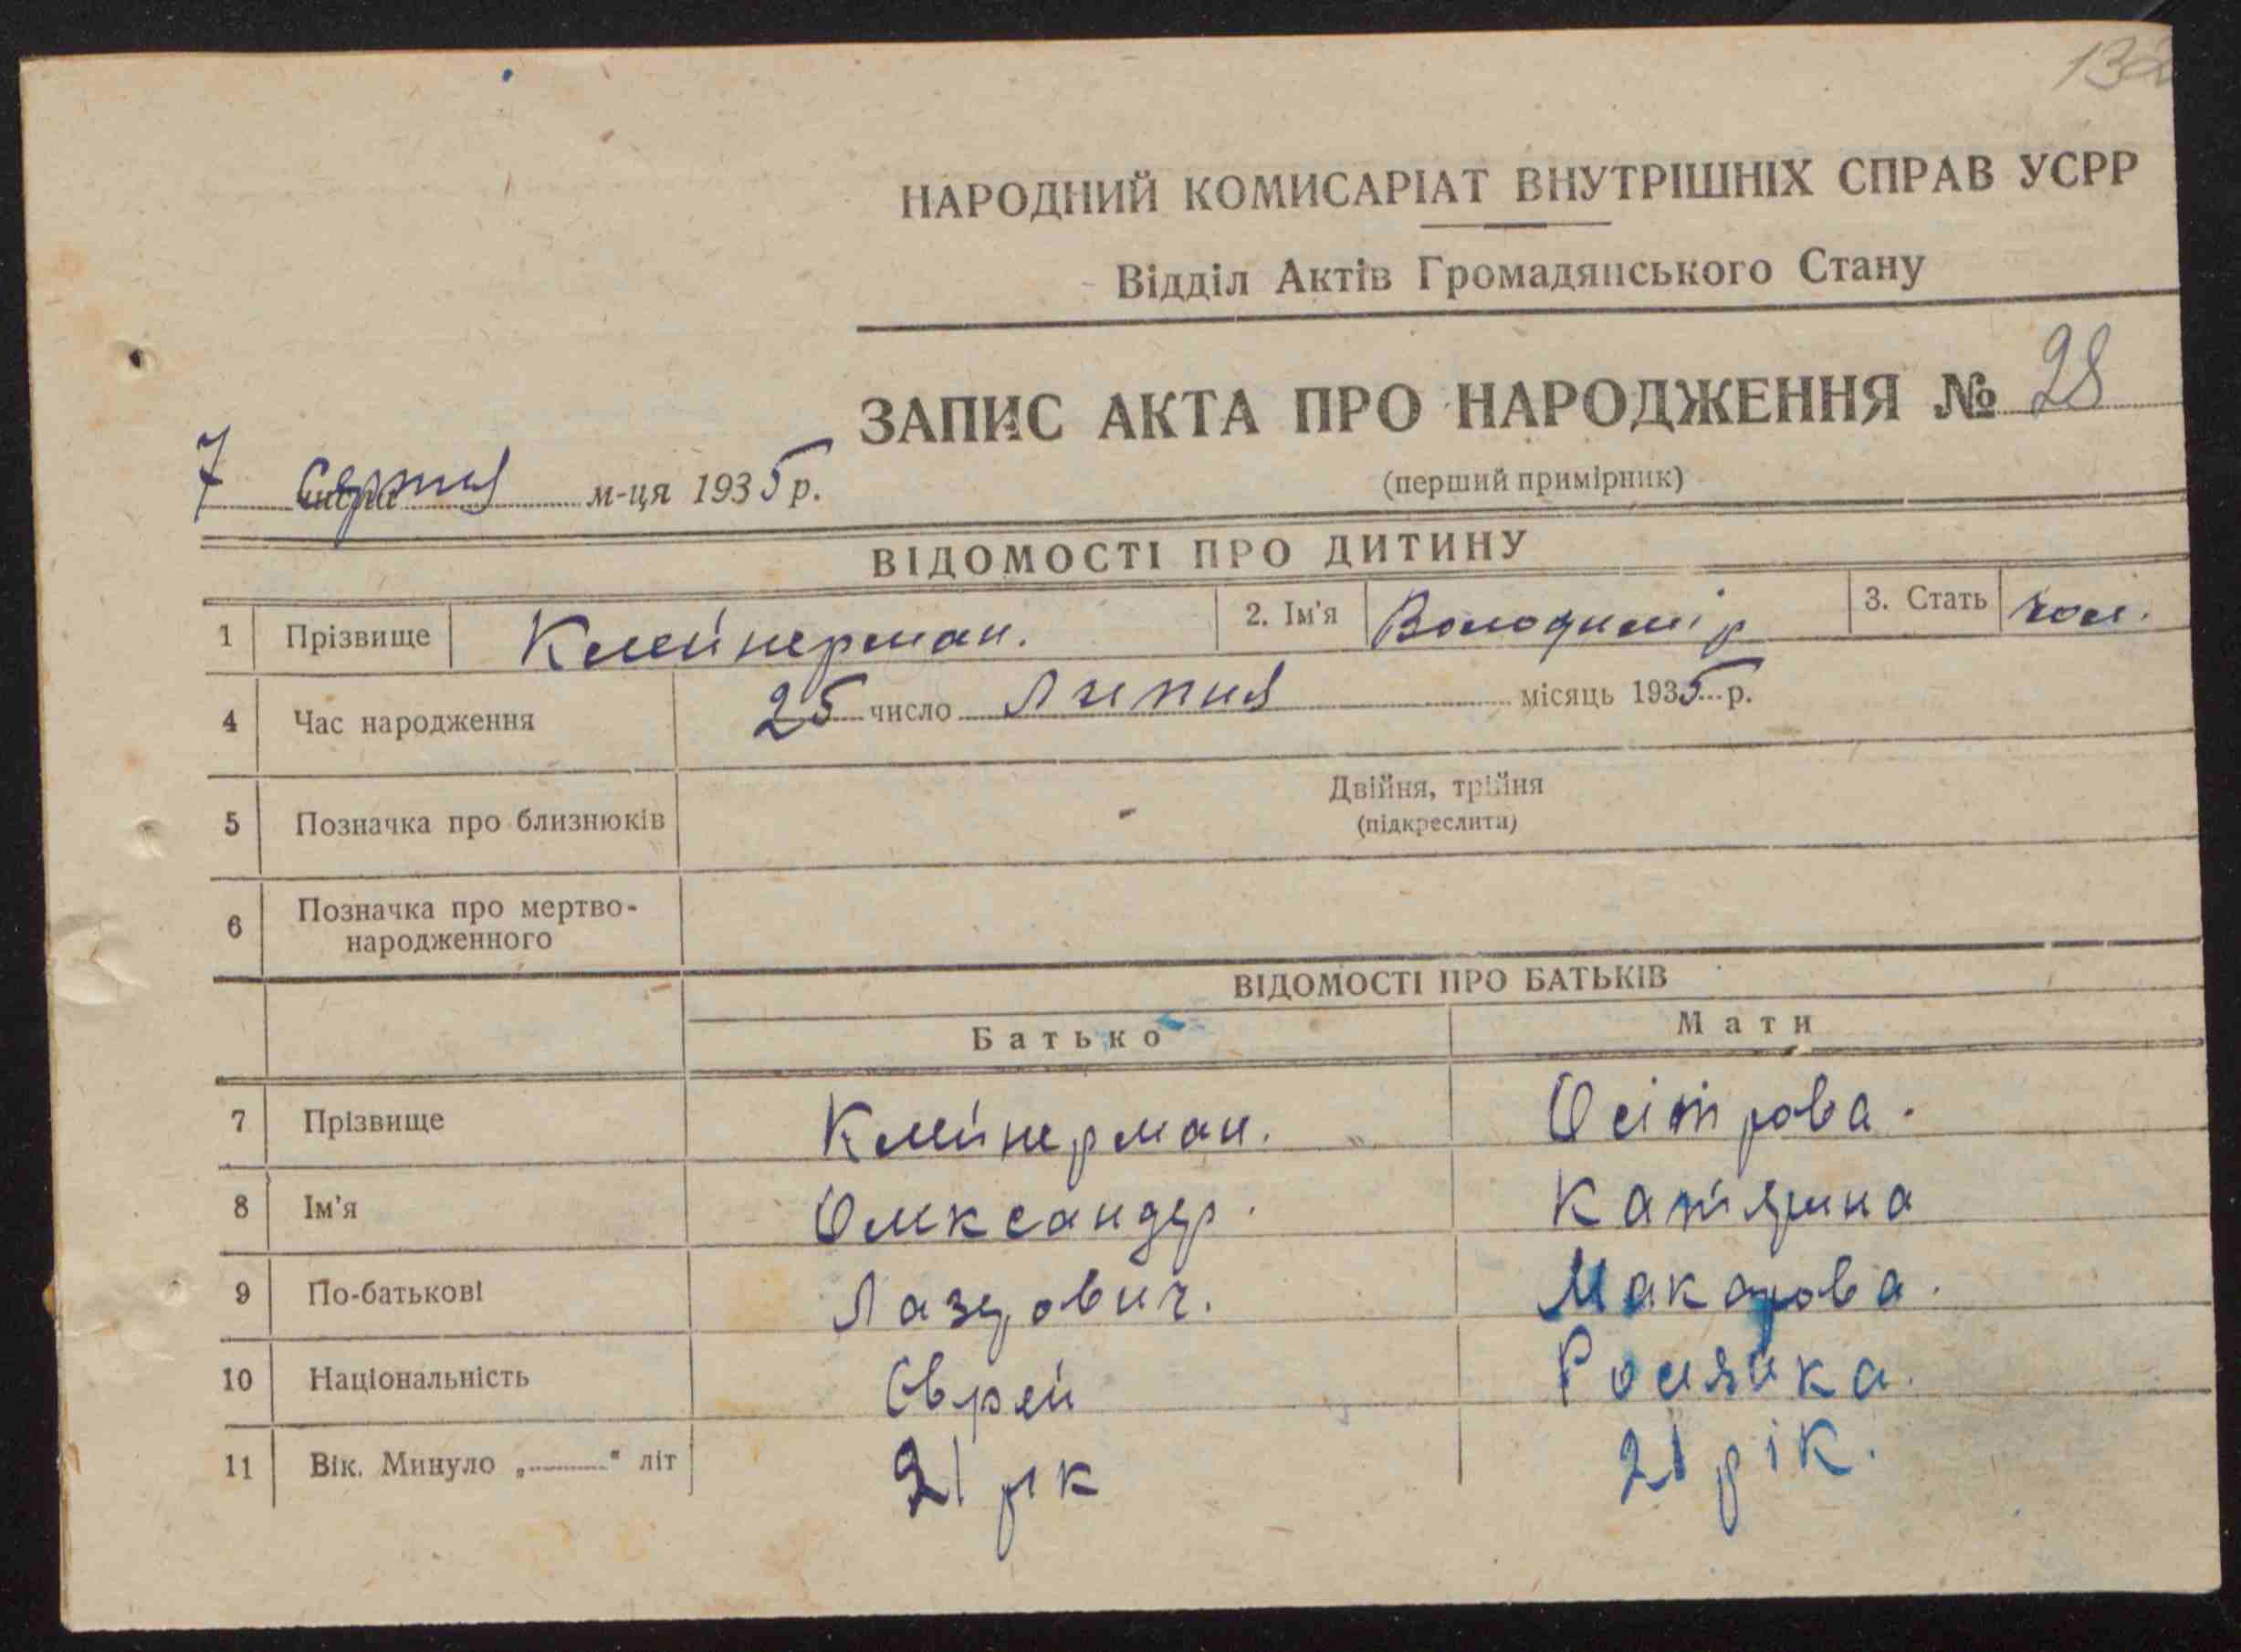 132
НАРОДНИЙ КОМИСАРІАТ ВНУТРІШНІХ СПРАВ УСРР
Відділ Актів Громадянського Стану
ЗАПИС АКТА ПРО НАРОДЖЕННЯ № 28
7 числа Серпня м-ця 1935 р.
(перший примірник)
ВІДОМОСТІ ПРО ДИТИНУ
1 Прізвище Клейнерман. 2. Ім'я Володимір 3. Стать чол.
4 Час народження 25 число Липня місяць 1935 р.
5 Позначка про близнюків - Двійня, трійня
(підкреслити)
6 Позначка про мертво-
народженного
ВІДОМОСТІ ПРО БАТЬКІВ
Батько Мати
7 Прізвище Клейнерман. Осітрова.
8 Ім'я Олександер. Катерина
9 По-батькові Лазерович. Макарова.
10 Національність Єврей Росіянка.
11 Вік. Минуло „ " літ 21 рік 21 рік.